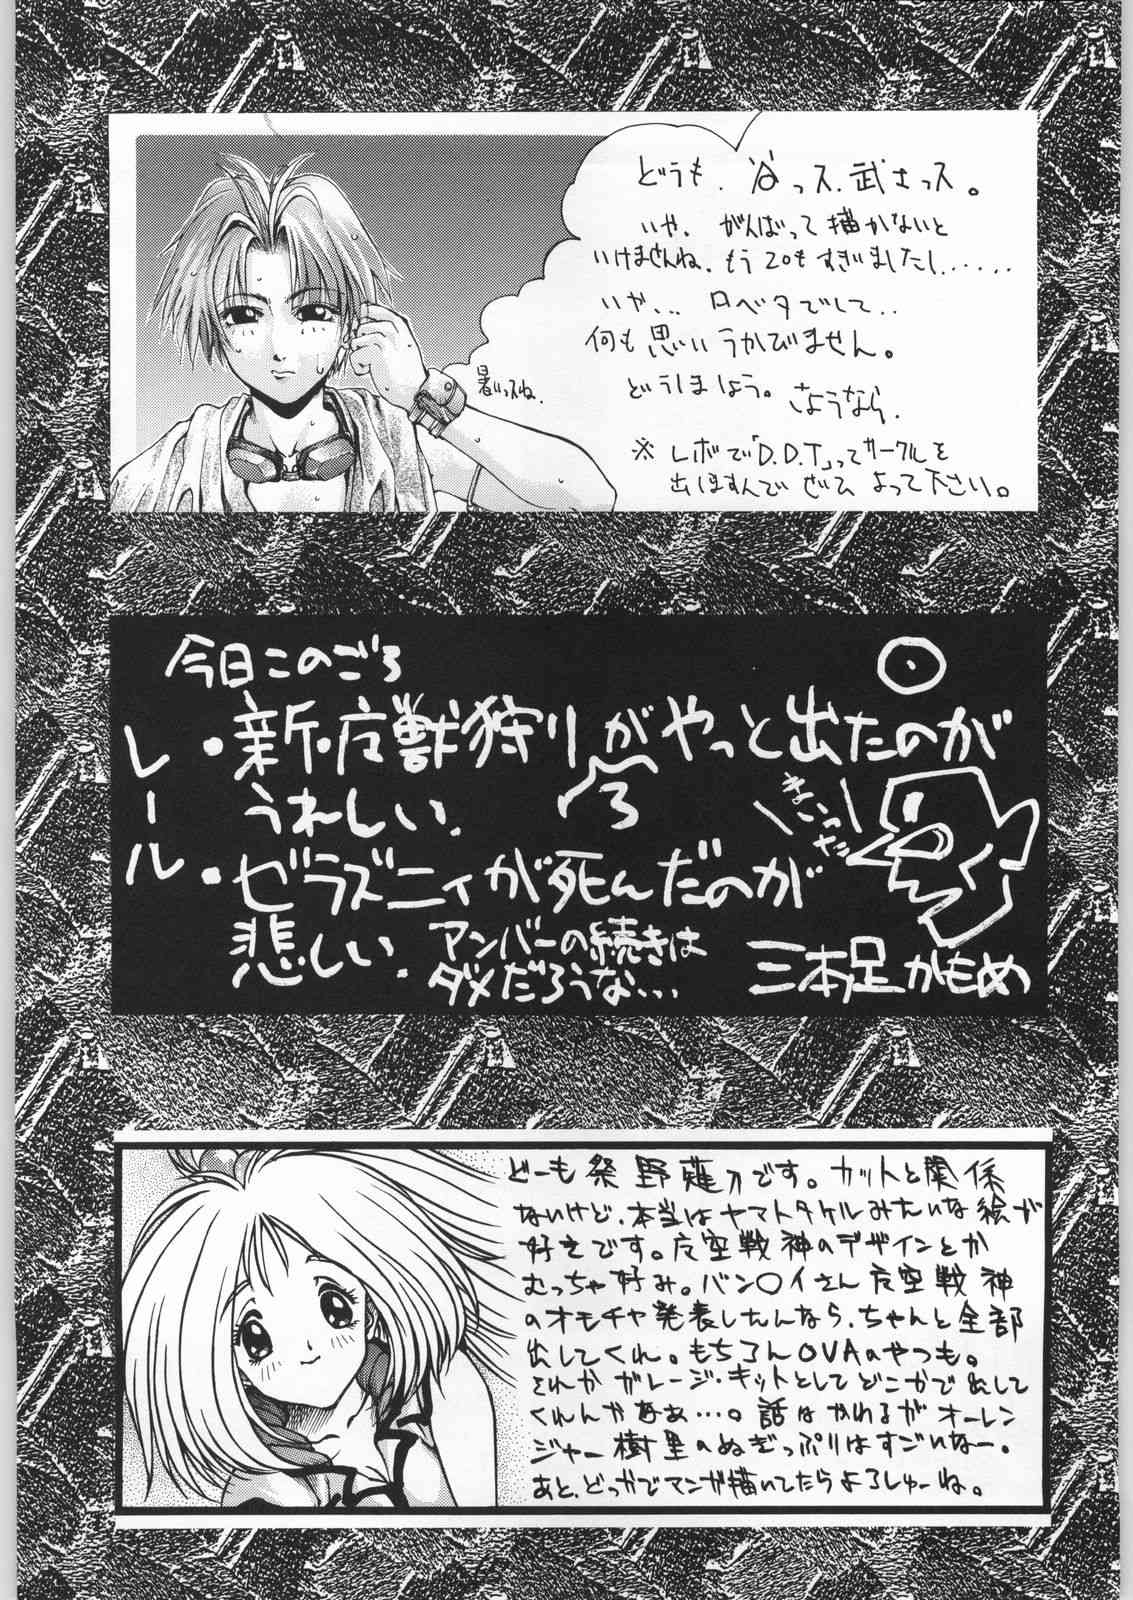 どうも、谷っス、武さっス。
いや、がんばって描かないと
いけませんね、もう20もすぎましたし、・・・・・
いや、・・ロベタでして・・
何も思いうかびません。
どうしましょう。さようなら。
暑いっスね、
※レボで「D.D.T」ってサークルを
出ほすんで ぜひよって下さい。
今日このごろ
レール
・新・広獣狩りがやっと出たのが
ろ
うれしい、
きょうだい
・ゼラズニィが死んだのが
悲しい、
アンバーの続きは
ダメだろうな・・・
三本足かもめ
どーも祭野薙刀です。カットと関係
ないけど、本当はヤマトタケルみたいな絵が
好きです。広空戦神のデザインとか
むっちゃ好み。バン〇イさん広空戦神
のオモチャ発表したんなら、ちゃんと全部
出してくれ。もちろんOVAのやつも。
それかガレージ・キットとしてどこかで出して
くれんかなあ・・・。話はかわるがオーレン
ジャー樹里のぬぎっぷりはすごいなー。
あと、どっかでマンガ描いてたらよろしゅーね。